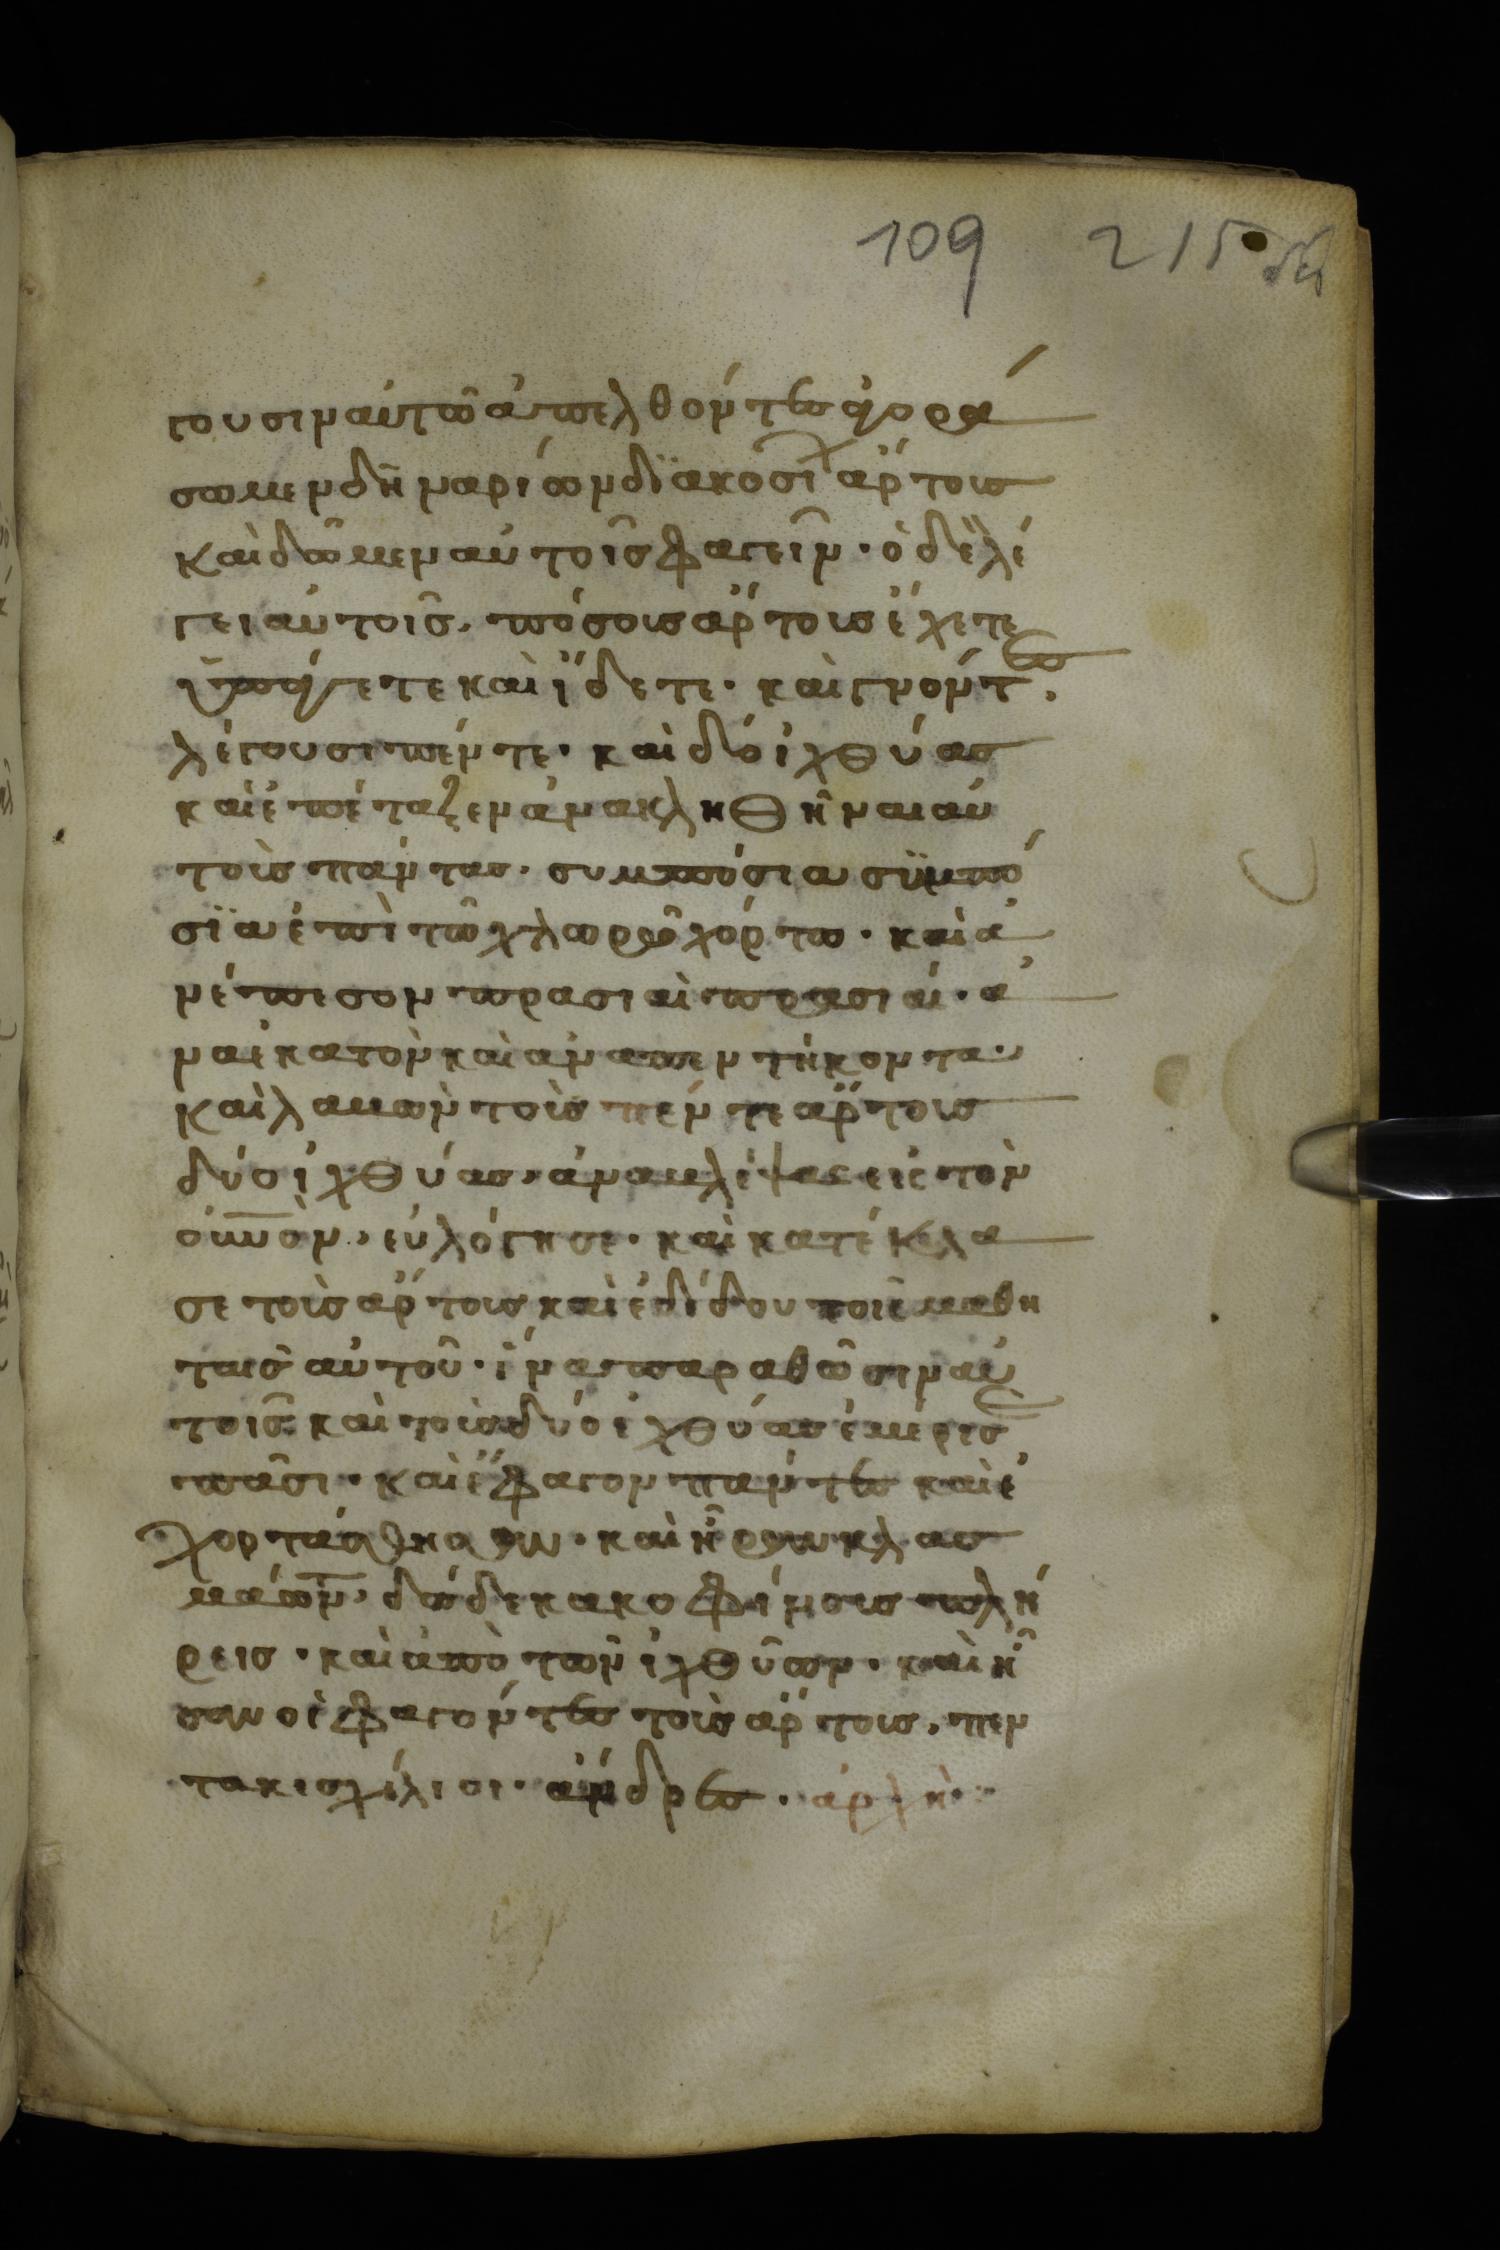 109 215
γουσιν αὐτῶ ἀπελθόντες ἀγορά
σωμεν δηναρίων διακοσίων ἄρτους
καὶ δῶμεν αὐτοῖς φαγεῖν · ὁ δὲ λέ
γει αὐτοῖς, πόσους ἄρτους ἔχετε
ὑπάγετε καὶ ἴδετε · καὶ γνόντες,
λέγουσι πέντε · καὶ δύο ἰχθύας
καὶ ἐπέταξεν ἀνακληθῆναι αὐ
τοὺς πάντας · συμπόσια συμπό
σϊα ἐπὶ τῶ χλωρῶ χόρτω · καὶ ἀ
νέπεσον πρασιαὶ πρασιαί · ἀ
να ἑκατὸν καὶ ἀνα πεντήκοντα ·
καὶ λαμὼν τοὺς πέντε ἄρτους
δύο ἰχθύας, ἀναμλέψας εἰς τὸν
οὐνὸν, εὐλόγησε · καὶ κατέκλα
σε τοὺς ἄρτους καὶ ἐδίδου τοῖς μαθη
ταις αὐτοῦ · ἵνα παραθῶσιν αὐ
τοῖς καὶ τοὺς δύο ἰχθύας ἐμέρισε
πᾶσι · καὶ ἔφαγον πάντες καὶ ἐ
χορτάσθησαν · καὶ ἦραν κλασ
μάτων, δώδεκα κοφίνους πλή
ρεις · καὶ ἀπὸ τῶν ἰχθύων · καὶ ἦ
σαν οἱ φαγόντες τοὺς ἄρτους, πεν
τακισχίλιοι · ἄνδρες · ἀρχὴ